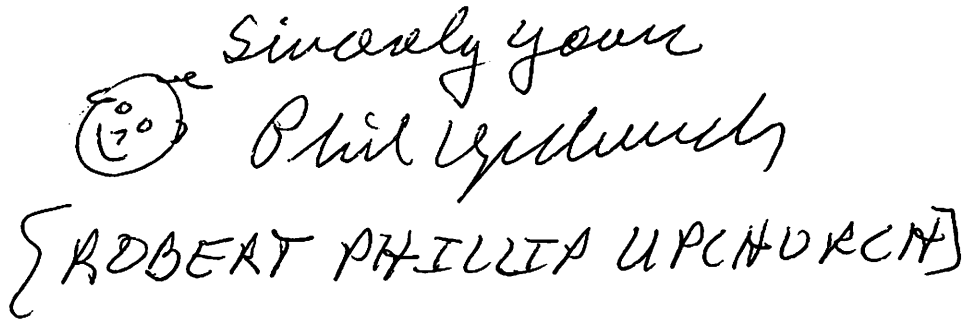 Sincerely yours
Phil Upchurch
{ROBERT PHILLIP UPCHURCH]